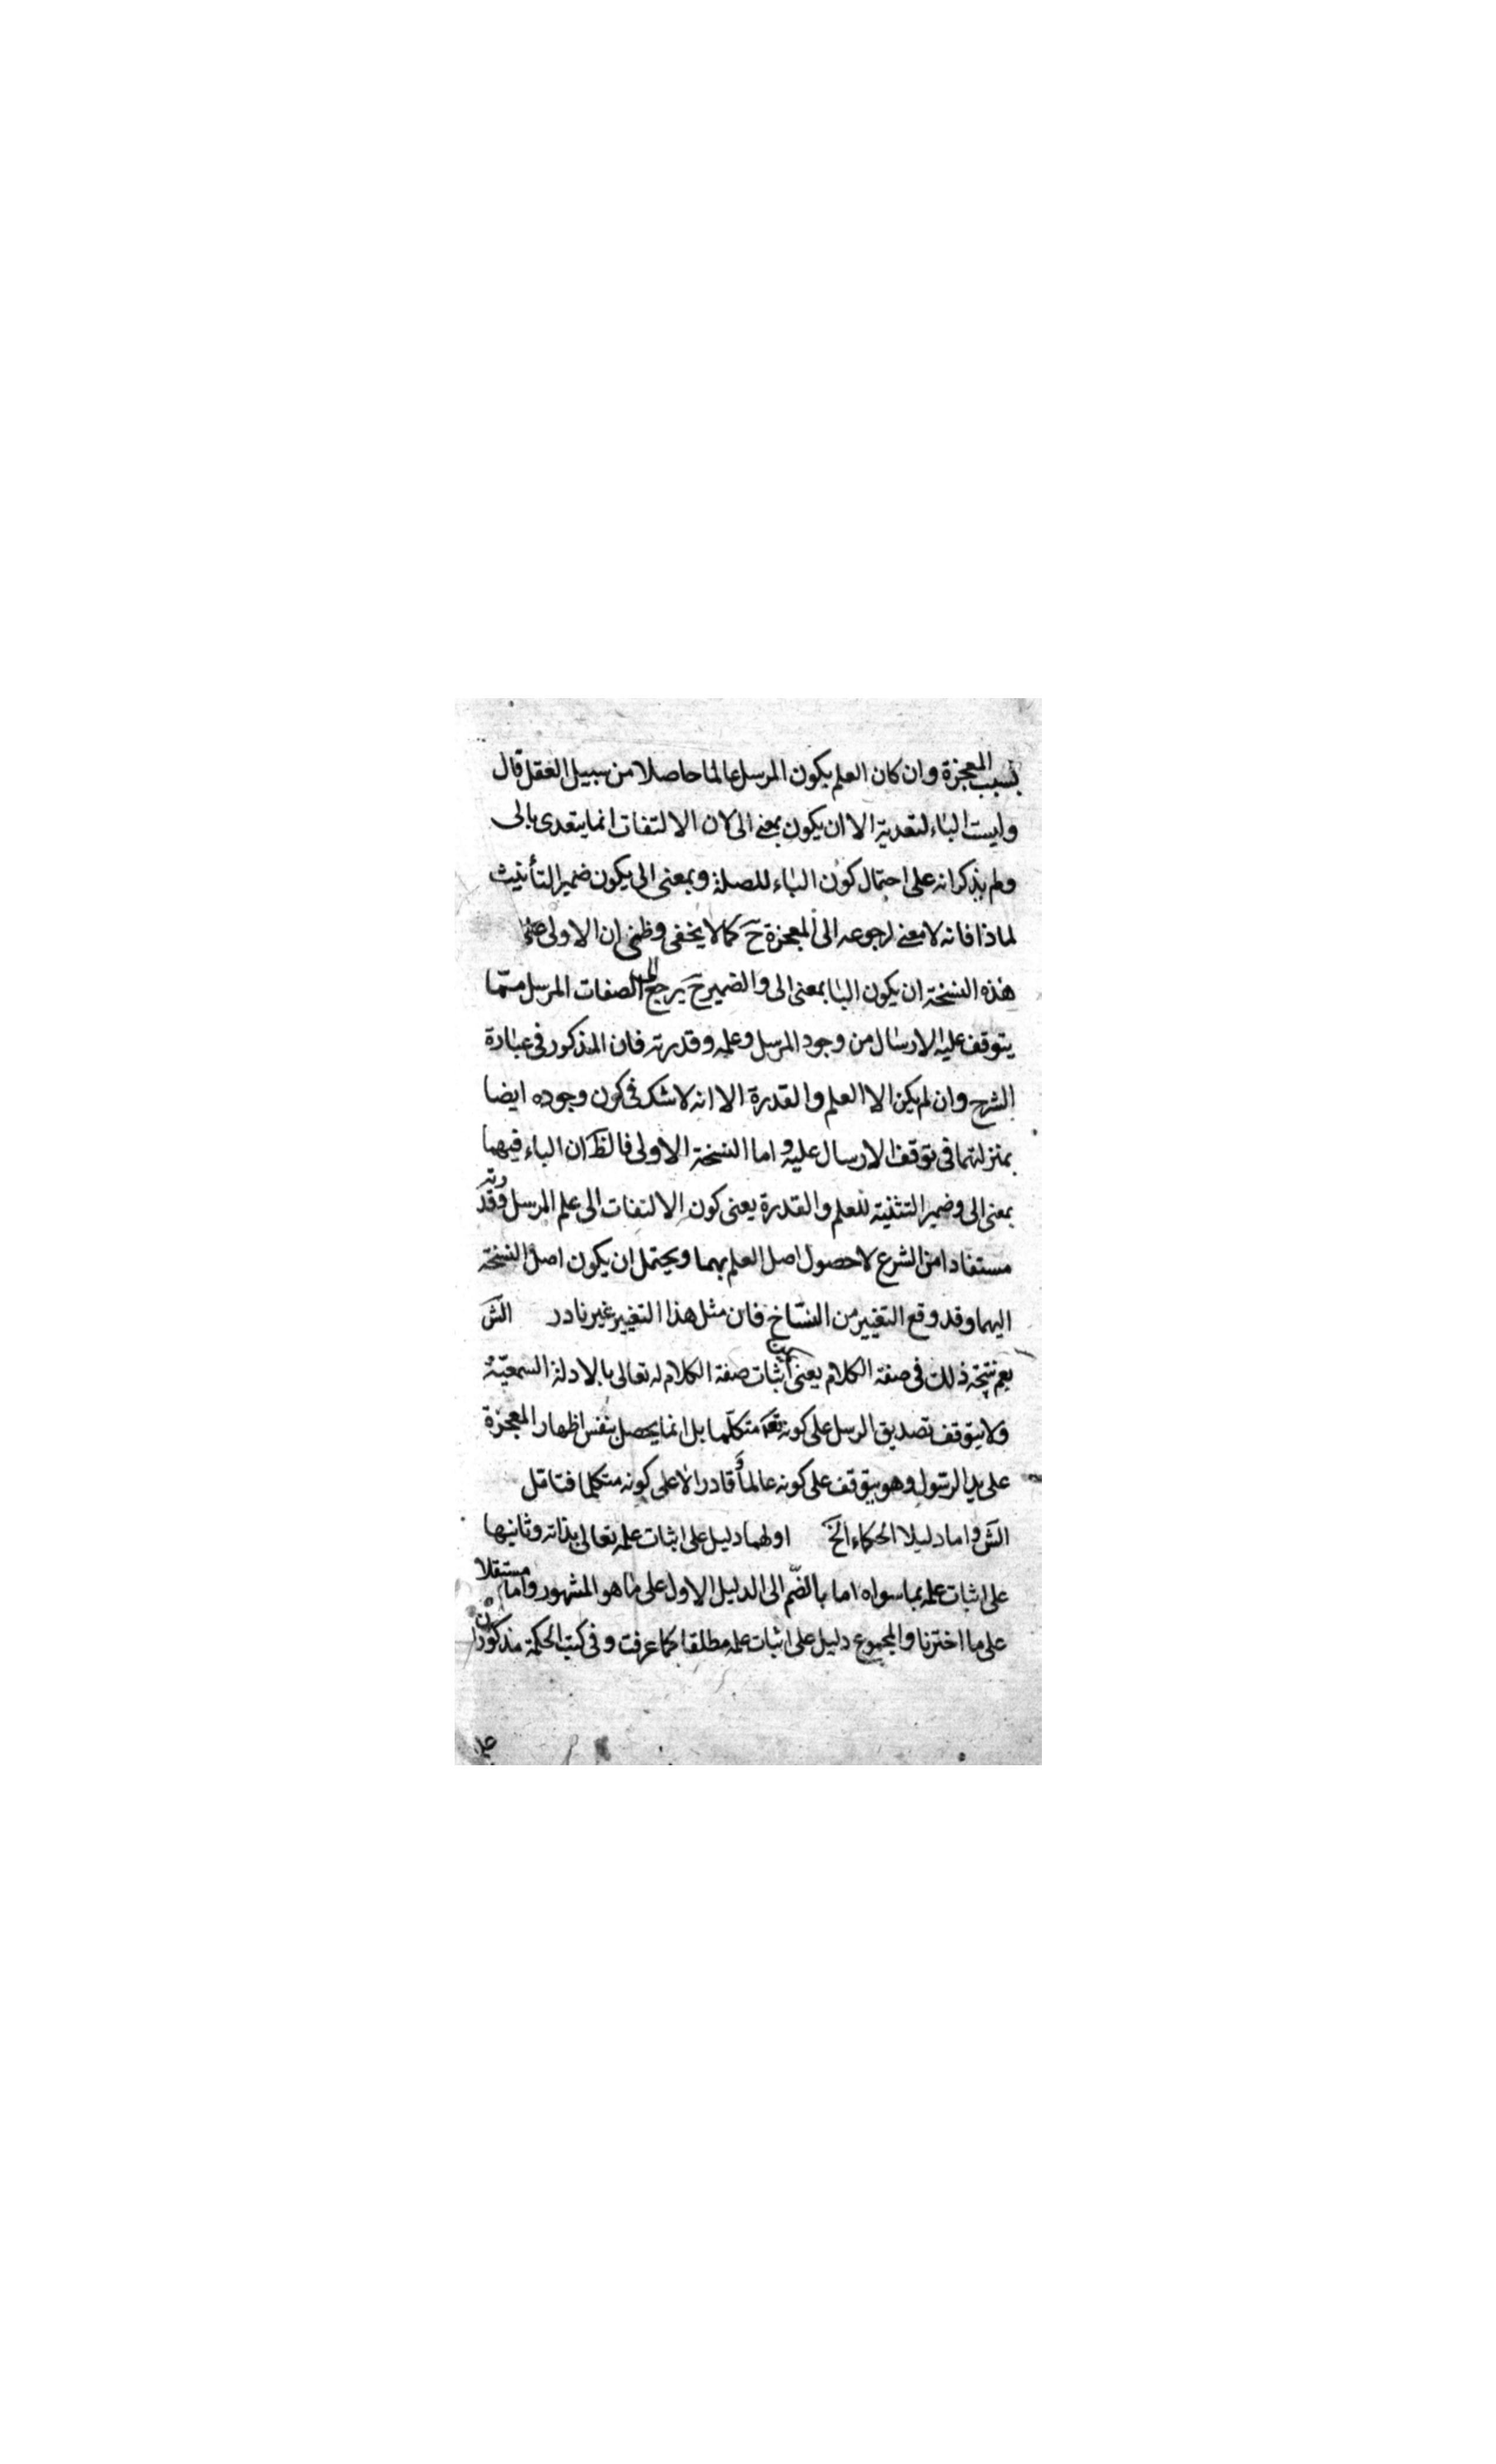 بسبب المعجزة وان كان العلم بكون المرسل عالما حاصلا من سبيل العقل قال
وليست الباء لتعدية الا ان يكون بمعنى الى لان الالتفات انما يتعدى بالى
ولم يذكر انه على احتمال كون الباء للصلة وبمعنى الى يكون ضمير التأنيث
لماذا فانه لا معنى لرجوعه الى المعجزة ح كما لا يخفى وظنى ان الاولى على
هذه النسخة ان يكون البا بمعنى الى والضمير ح يرجع الى الصفات المرسل مما
يتوقف عليه الارسال من وجود المرسل وعلمه وقدرته فان المذكور فى عبارة
الشرح وان لم يكن الا العلم والقدرة الا انه لا شك فى كون وجوده ايضا
بمنزلتهما فى توقف الارسال عليه واما النسخة الاولى فالظ ان الباء فيهما
بمعنى الى وضمير التثنيه للعلم والقدرة يعنى كون الالتفات الى علم المرسل وقدرته
مستفادا من الشرع لا حصول اصل العلم بهما ويحتمل ان يكون اصل النسخة
اليهما وقد وقع التغيير من النساخ فان مثل هذا التغيير غير نادر الش
نعم نتجه ذلك فى صفة الكلام يعنى اثبات صفة الكلام له تعالى بالادلة السمعية
ولا يتوقف تصديق الرسل على كونه تعـ متكلما بل انما يحصل بنفس اظهار المعجزة
على يد الرسول وهو يتوقف على كونه عالما وقادرا لا على كونه متكلما فتامل
الش واما دليلا الحكماء الخ اولهما دليل على اثبات علمه تعالى بذاته وثانيها
على اثبات علمه بما سواه اما بالضم الى الدليل الاول على ما هو المشهور واما مستقلا
على ما اخترنا والمجموع دليل على اثبات علمه مطلقا كما عرفت وفى كتب الحكمة مذكوران